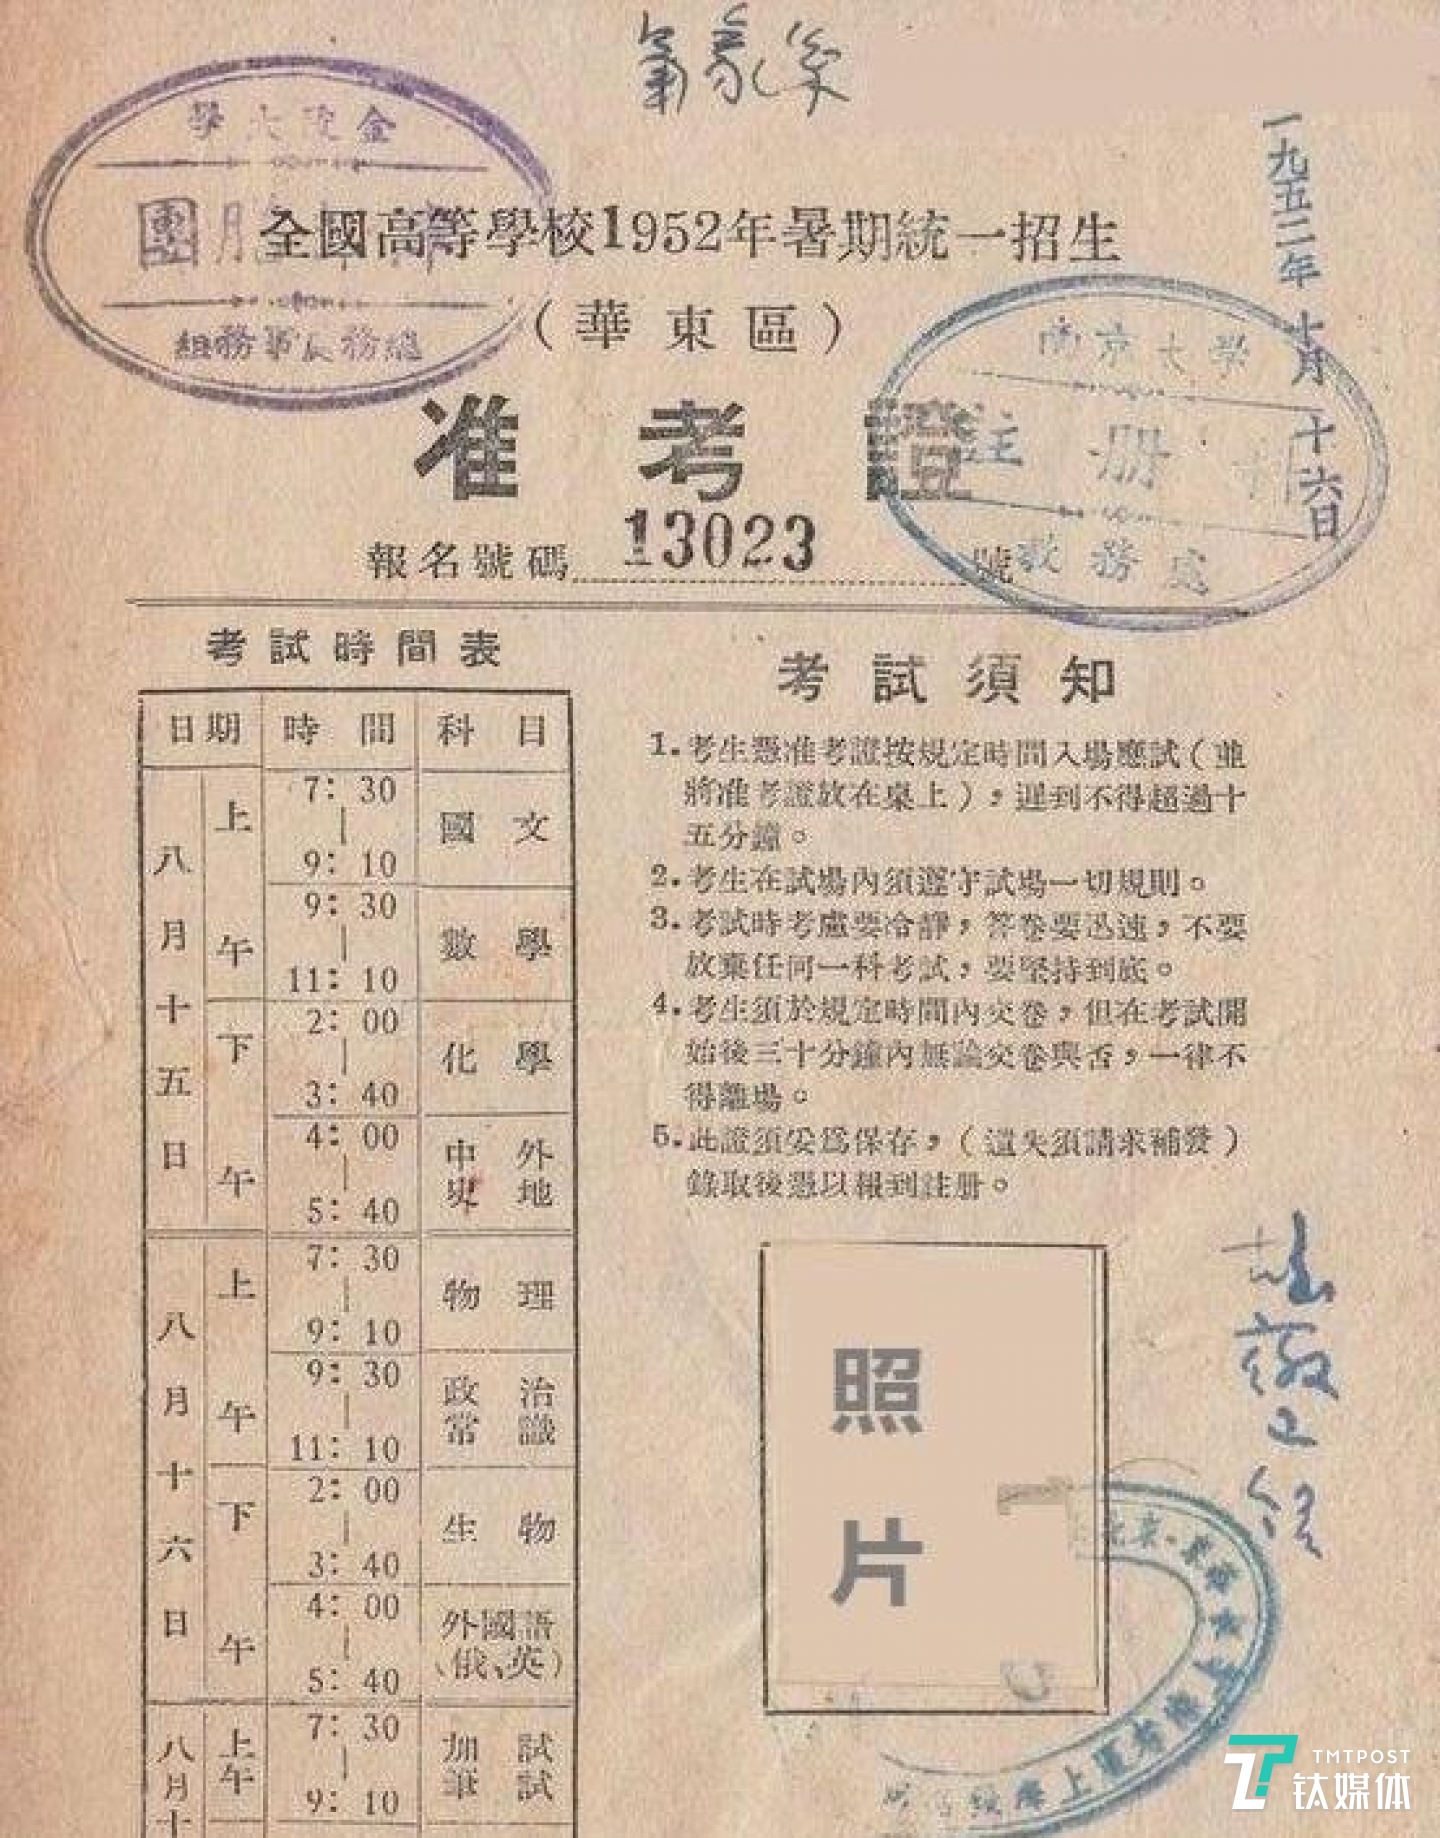 氣象系
金陵大學
團
總務長事務組
一九五二年十月十六日
全國高等學校1952年暑期統一招生
（華東區）
南京大学
註册
教務處
准考證
報名號碼 13023 號
考試時間表
日期 時間 科目
八月十五日
上午
7：30 | 9：10 國文
9：30 | 11：10 數學
下午
2：00 | 3：40 化學
4：00 | 5：40 中外史地
八月十六日
上午
7：30 | 9：10 物理
9：30 | 11：10 政治常識
下午
2：00 | 3：40 生物
4：00 | 5：40 外國語（俄、英）
八月十
上午
7：30 | 9：10 加試筆試
考試須知
1.考生憑准考證按規定時間入場應試（並
將准考證放在桌上），遲到不得超過十
五分鐘。
2.考生在試場內須遵守試場一切規則。
3.考試時考慮要冷靜，答卷要迅速，不要
放棄任何一科考試，要堅持到底。
4.考生須於規定時間內交卷，但在考試開
始後三十分鐘內無論交卷與否，一律不
得離場。
5.此證須妥爲保存，（遺失須請求補發）
錄取後憑以報到註册。
照片
TMTPOST
钛媒体